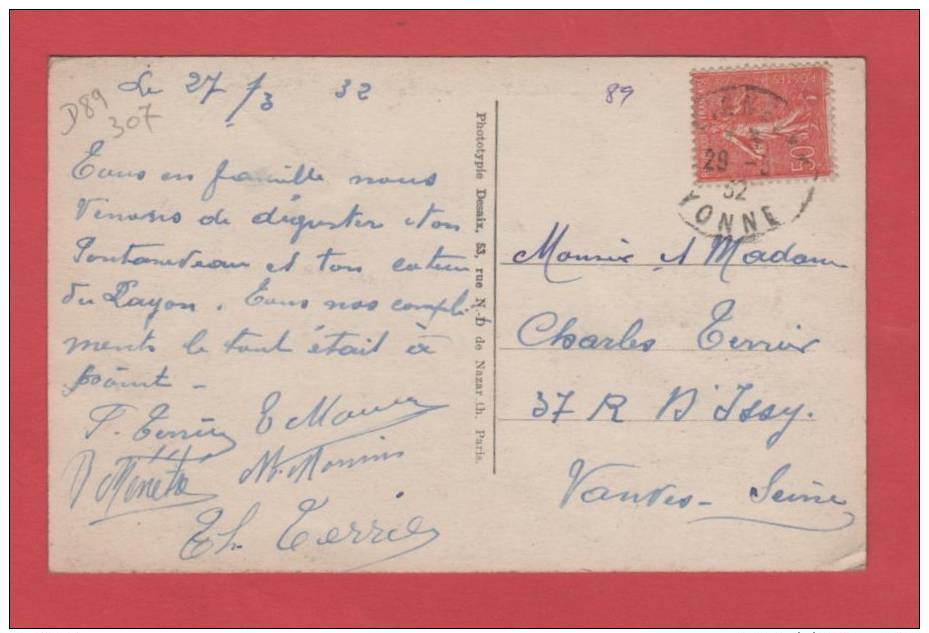 Le 27/3 32
D89
307
89
Tous en famille nous
venons de déguster ton
et ton coteau
du Layon. Tous nos compli-
ments le tout était à
point -
T. Terrier
Th. Terrier
Phototypie Desaix, 53, rue N.-D de Nazar th. Paris.
50
29 -3
32
YONNE
Monsieur et Madame
Charles Terrier
37 R D'Issy.
Vanves - Seine